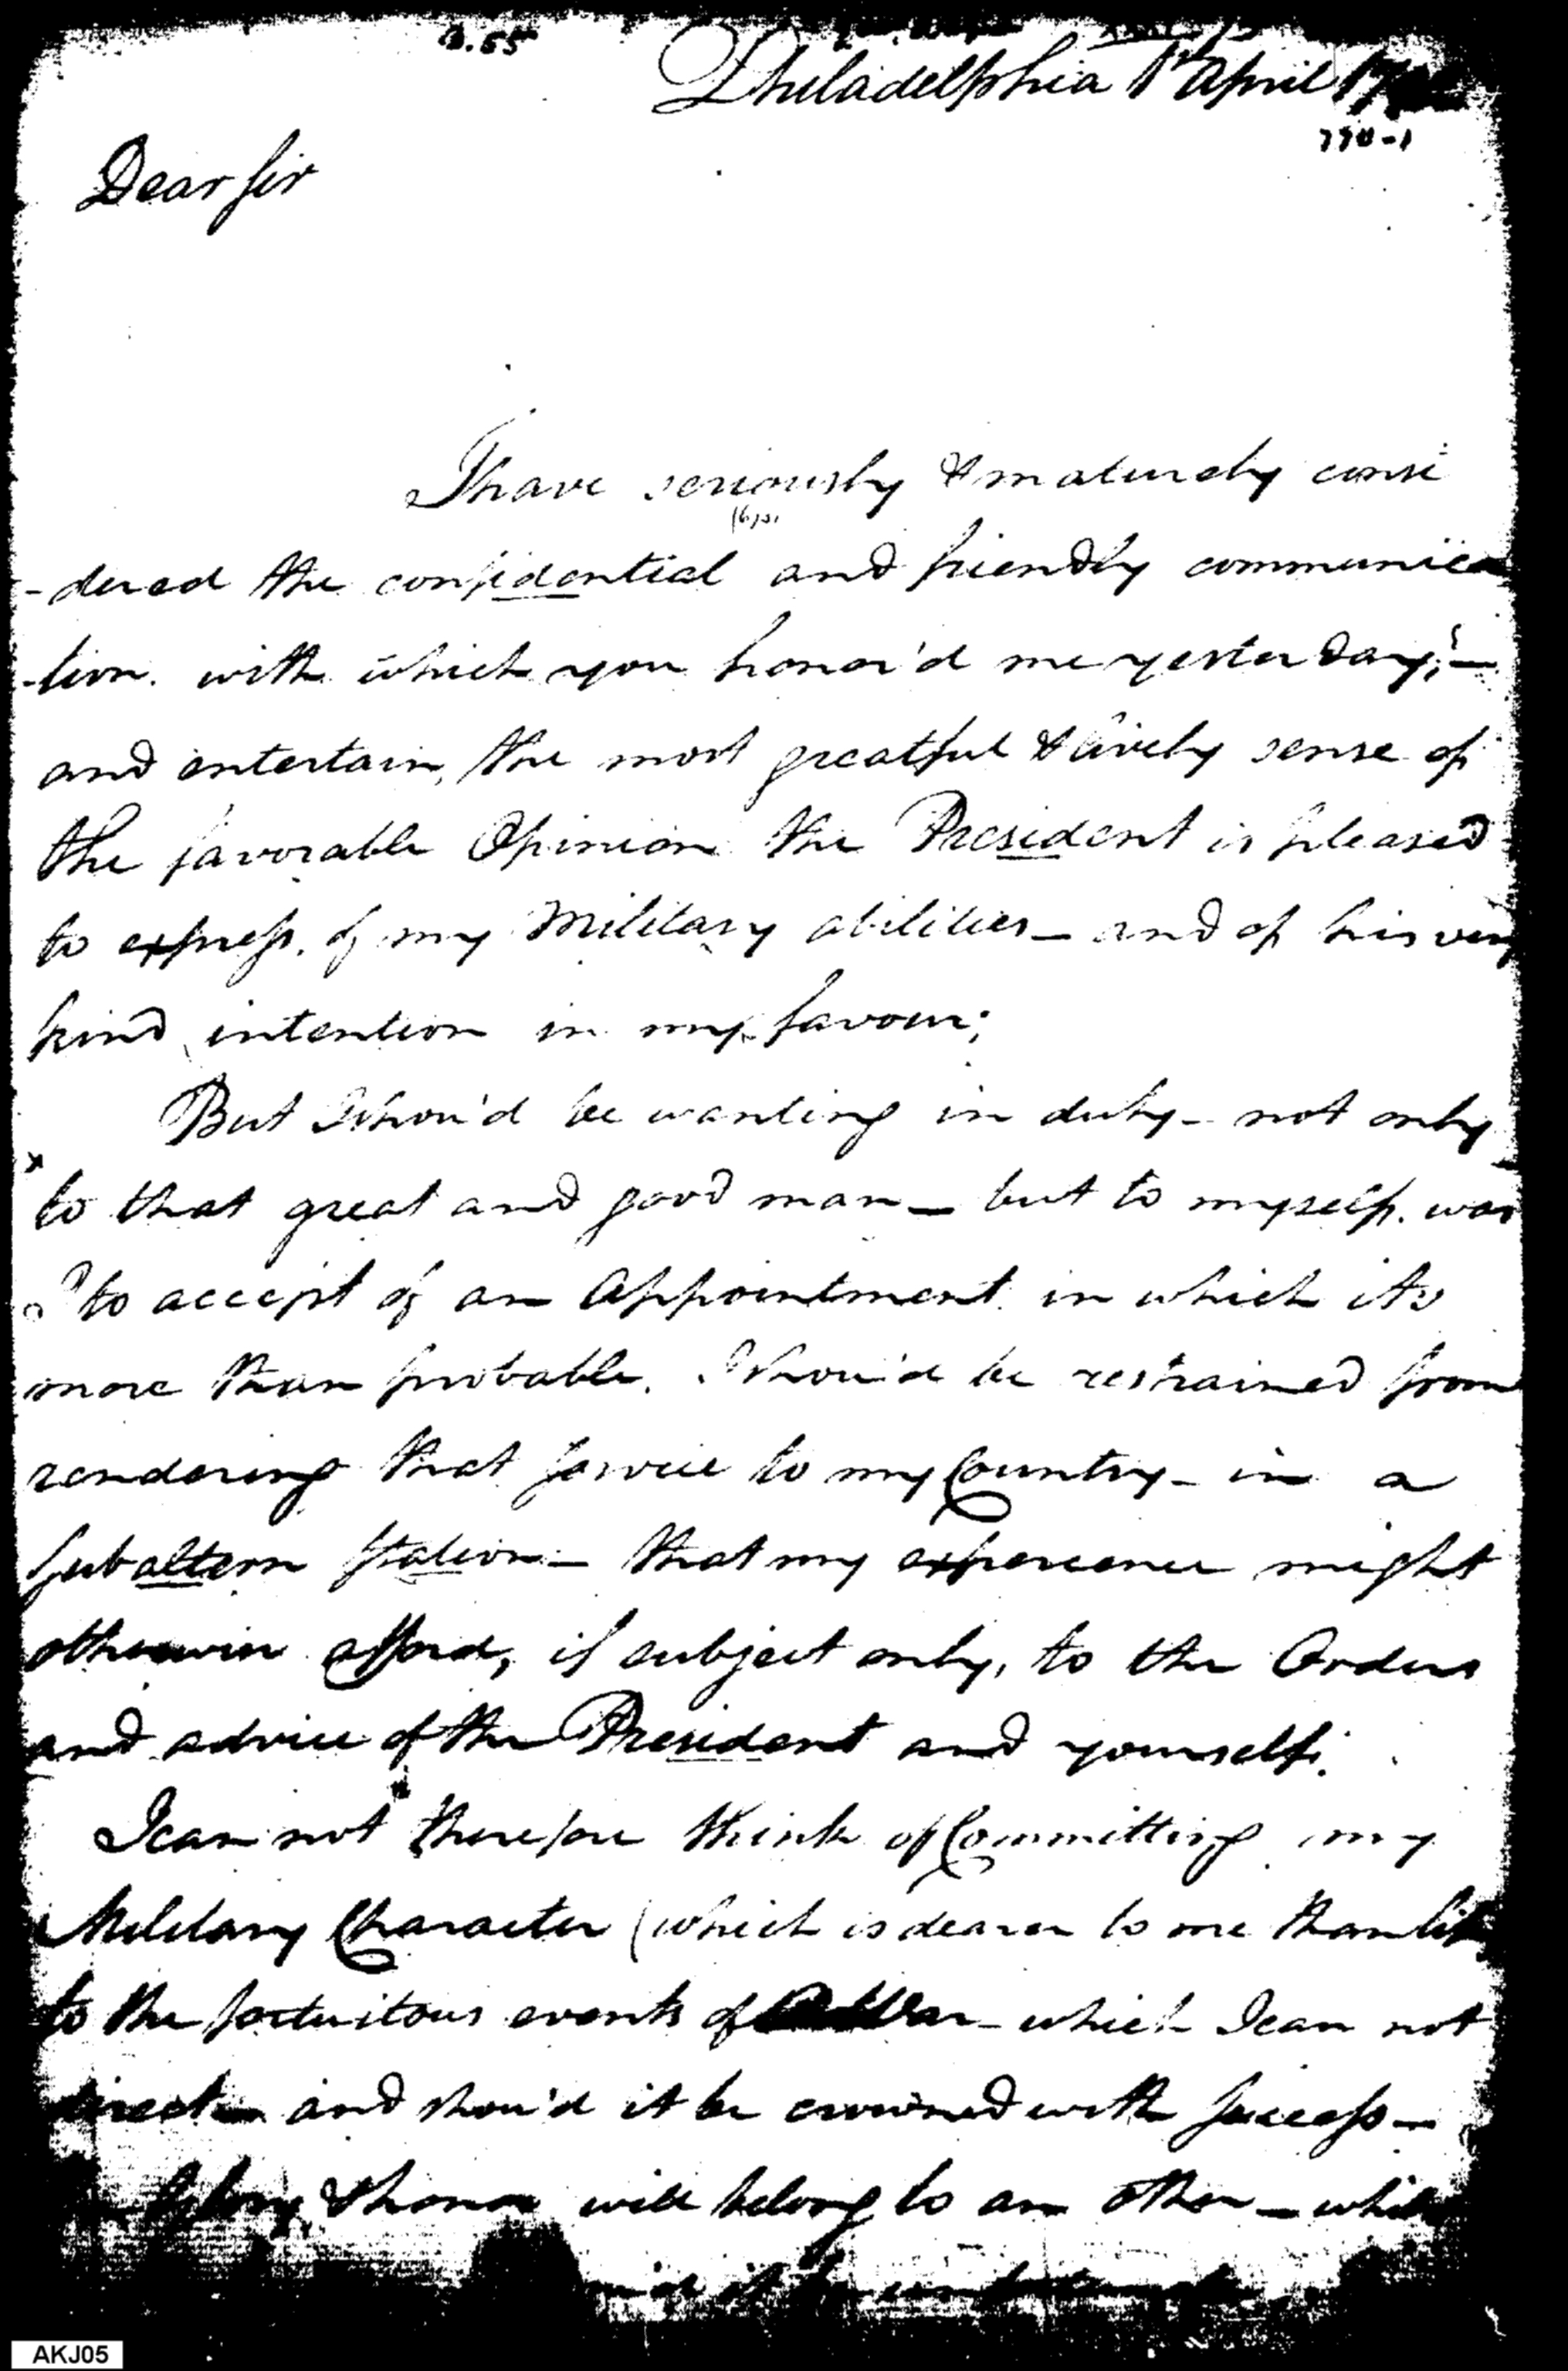 Philadelphia 1st April 17
Dear Sir
I have seriously & maturely consi
-dered the confidential and friendly communica
-tion. with which you honor'd me yesterday;—
and entertain, the most greatful & lively sense of
the favorable Opinion the President is pleased
to express. of my Military abilities— and of his very
kind intention in my favour;
But I shou'd be wanting in duty— not only
to that great and good man— but to myself. was
I to accept of an Appointment. in which its
more than probable. I shou'd be restrained from
rendering that service to my Country— in a
Subaltern Station— that my experience might
otherwise afford, if subject only, to the Orders
and advice of the President and yourself;
I can not therefore think of Committing my
Military Character (which is dearer to me than life
to the fortuitous events of a War— which I can not
direct— and shou'd it be crowned with Success—
Glory & honor will belong to an other— while
AKJ05